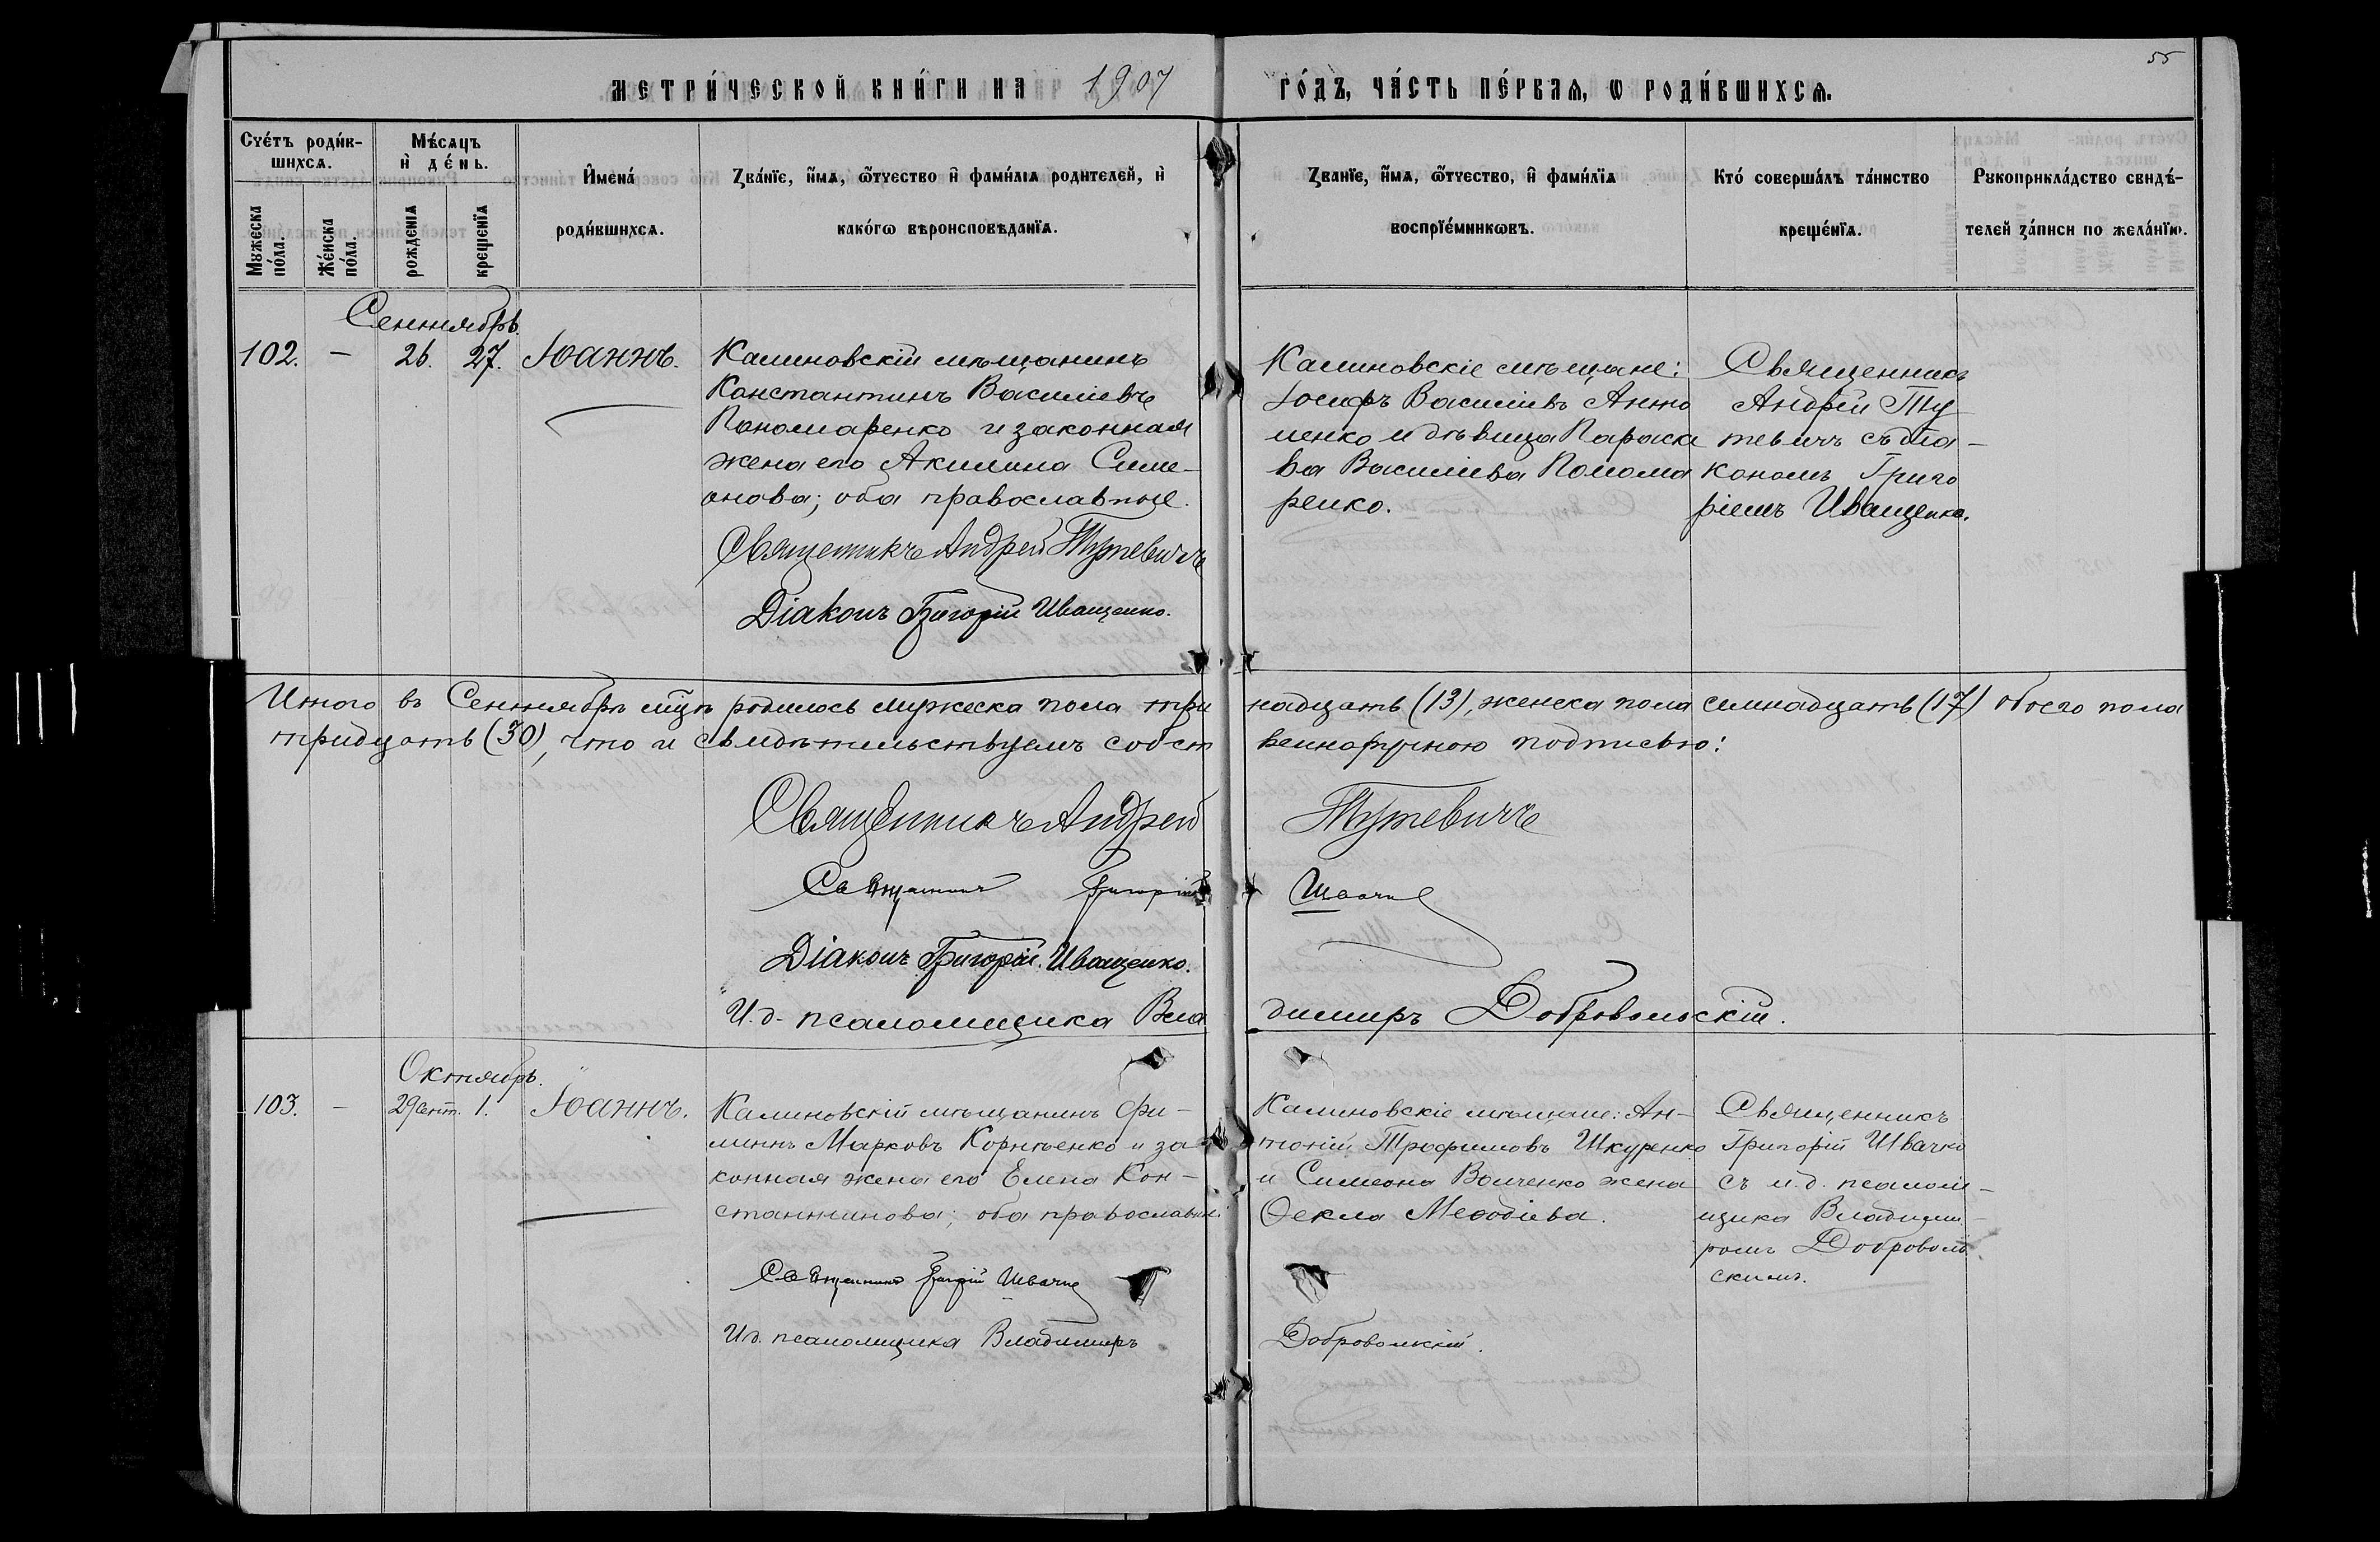 55
МЕТРИ́ЧЕСКОЙ КНИ́ГИ НА 1907 ГО́ДЪ, ЧА́СТЬ ПЕ́РВАѦ, Ѡ РОДИ́ВШИХСѦ.
Сче́тъ роди́в-
шихсѧ.
Мꙋжеска по́ла.
Же́нска по́ла.
Мѣ́сѧцъ
и҆ де́нь.
рожденїѧ
крещенїѧ
И҆мена́
роди́вшихсѧ.
Зва́нїе, и҆́мѧ, ѻ҆́тчество и҆ фами́лїѧ родителей, и҆
како́гѡ вѣроисповѣданїѧ.
Званїе, и҆́мѧ, ѻ҆́тчество, и҆ фами́лїѧ
воспрїе́мникѡвъ.
Кто́ соверша́лъ та́инство
креще́нїѧ.
Рꙋкоприкла́дство свидѣ́-
телей за́писи по жела́нїю.
Сентябрь.
102. — 26. 27. Іоаннъ.
Калиновскій мѣщанинъ
Константинъ Василіевъ
Пономаренко и законная
жена его Акилина Симе-
онова; оба православные.
Священникъ Андрей Тутевичъ
Діаконъ Григорій Иващенко.
Калиновскіе мѣщане:
Іосифъ Василіевъ Анто
ненко и дѣвица Параске
ва Василіева Понома
ренко.
Священникъ
Андрей Ту
тевичъ съ діа-
кономъ Григо
ріемъ Иващенко.
Итого въ Сентябрѣ мцѣ родилось мужеска пола три надцать (13), женска пола семнадцать (17) обоего пола
тридцать (30), что и свидѣтельствуемъ собст венноручною подписью:
Священникъ Андрей Тутевичъ
Священникъ Григорій Швачко
Діаконъ Григорій Иващенко.
И. д. псаломщика Вла димиръ Добровольскій.
Октябрь.
103. — 29 Сент. 1. Іоаннъ.
Калиновскій мѣщанинъ Фи-
липпъ Марковъ Корніенко и за-
конная жена его Елена Кон-
стантинова; оба православн.
Священникъ Григорій Швачко
И.д. псаломщика Владимиръ Добровольскій.
Калиновскіе мѣщане: Ан-
тоній Трофимовъ Шкуренко
и Симеона Волченко жена
Ѳекла Меѳодіева.
Священникъ
Григорій Швачко
съ и. д. псалом-
щика Владими-
ромъ Доброволь
скимъ.